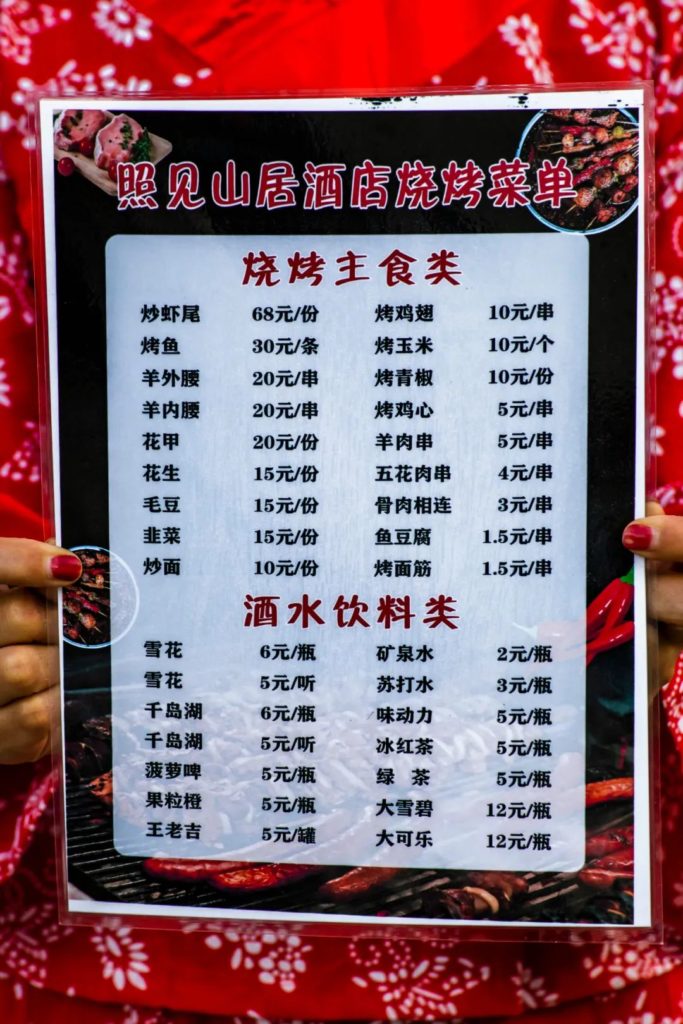 照见山居酒店烧烤菜单
烧烤主食类
炒虾尾 68元/份 烤鸡翅 10元/串
烤鱼 30元/条 烤玉米 10元/个
羊外腰 20元/串 烤青椒 10元/份
羊内腰 20元/串 烤鸡心 5元/串
花甲 20元/份 羊肉串 5元/串
花生 15元/份 五花肉串 4元/串
毛豆 15元/份 骨肉相连 3元/串
韭菜 15元/份 鱼豆腐 1.5元/串
炒面 10元/份 烤面筋 1.5元/串
酒水饮料类
雪花 6元/瓶 矿泉水 2元/瓶
雪花 5元/听 苏打水 3元/瓶
千岛湖 6元/瓶 味动力 5元/瓶
千岛湖 5元/听 冰红茶 5元/瓶
菠萝啤 5元/瓶 绿 茶 5元/瓶
果粒橙 5元/瓶 大雪碧 12元/瓶
王老吉 5元/罐 大可乐 12元/瓶